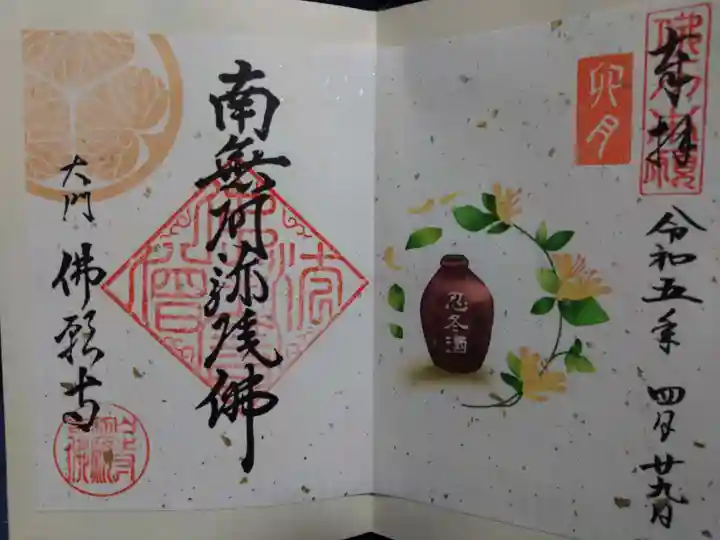 奉拝
卯月
令和五年 四月廿九日
忍冬酒
南無阿弥陀佛
大門 佛願寺